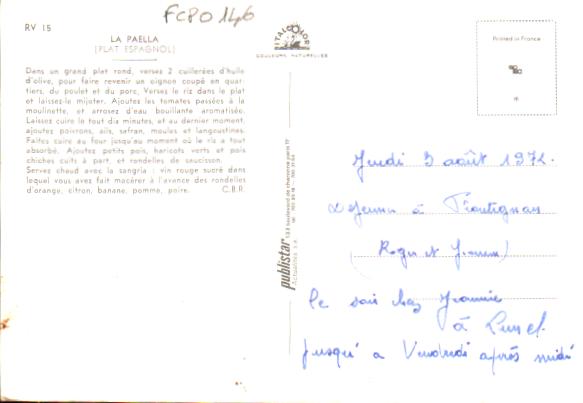 RV 15
FCPO 146
LA PAELLA
(PLAT ESPAGNOL)
Dans un grand plat rond, versez 2 cuillerées d'huile
d'olive, pour faire revenir un oignon coupé en quar-
tiers, du poulet et du porc, Versez le riz dans le plat
et laissez-le mijoter. Ajoutez les tomates passées à la
moulinette, et arrosez d'eau bouillante aromatisée.
Laissez cuire le tout dix minutes, et au dernier moment,
ajoutez poivrons, ails, safran, moules et langoustines.
Faites cuire au four jusqu'au moment où le riz a tout
absorbé. Ajoutez petits pois, haricots verts et pois
chiches cuits à part, et rondelles de saucisson.
Servez chaud avec la sangria : vin rouge sucré dans
lequel vous avez fait macérer à l'avance des rondelles
d'orange, citron, banane, pomme, poire. C.B.R.
ITALCOLOR
COULEURS NATURELLES
publistar
Actualités s.a.
133 boulevard de charonne paris 11e
Printed in France
Jeudi 3 août 1972.
Déjeuner à Frontignan
(Roger et )
le soir chez Jeannine
à Lunel
jusqu'à Vendredi après midi